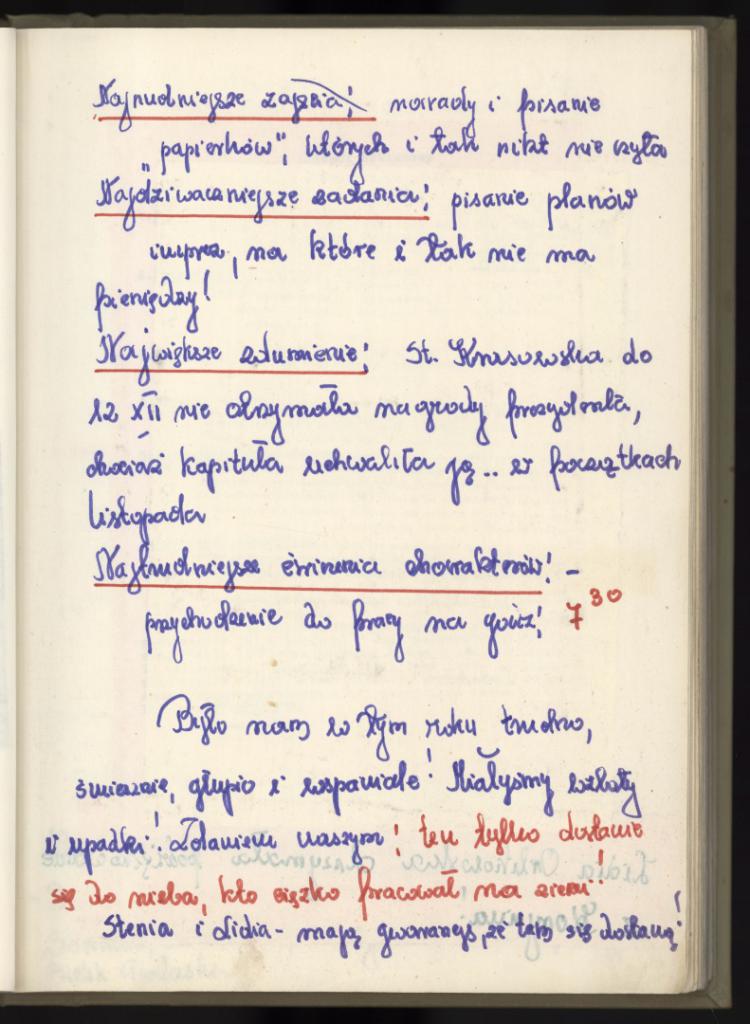 Najnudniejsze zajęcia: narady i pisanie
„papierków", których i tak nikt nie czyta
Najdziwaczniejsze zadania: pisanie planów
imprez, na które i tak nie ma
pieniędzy!
Największe zdumienie: St. do
12 XII nie otrzymała nagrody prezydenta,
chociaż kapituła uchwaliła ją .. w początkach
listopada
Najtrudniejsze ćwiczenia charakterów! –
przychodzenie do pracy na godz! 7³⁰
Było nam w tym roku trudno,
śmiesznie, głupio i wspaniale! Miałyśmy wzloty
i upadki! Zdaniem naszym! ten tylko dostanie
się do nieba, kto ciężko pracował na ziemi!
Stenia i Lidia - mają gwarancję, że tam się dostaną!